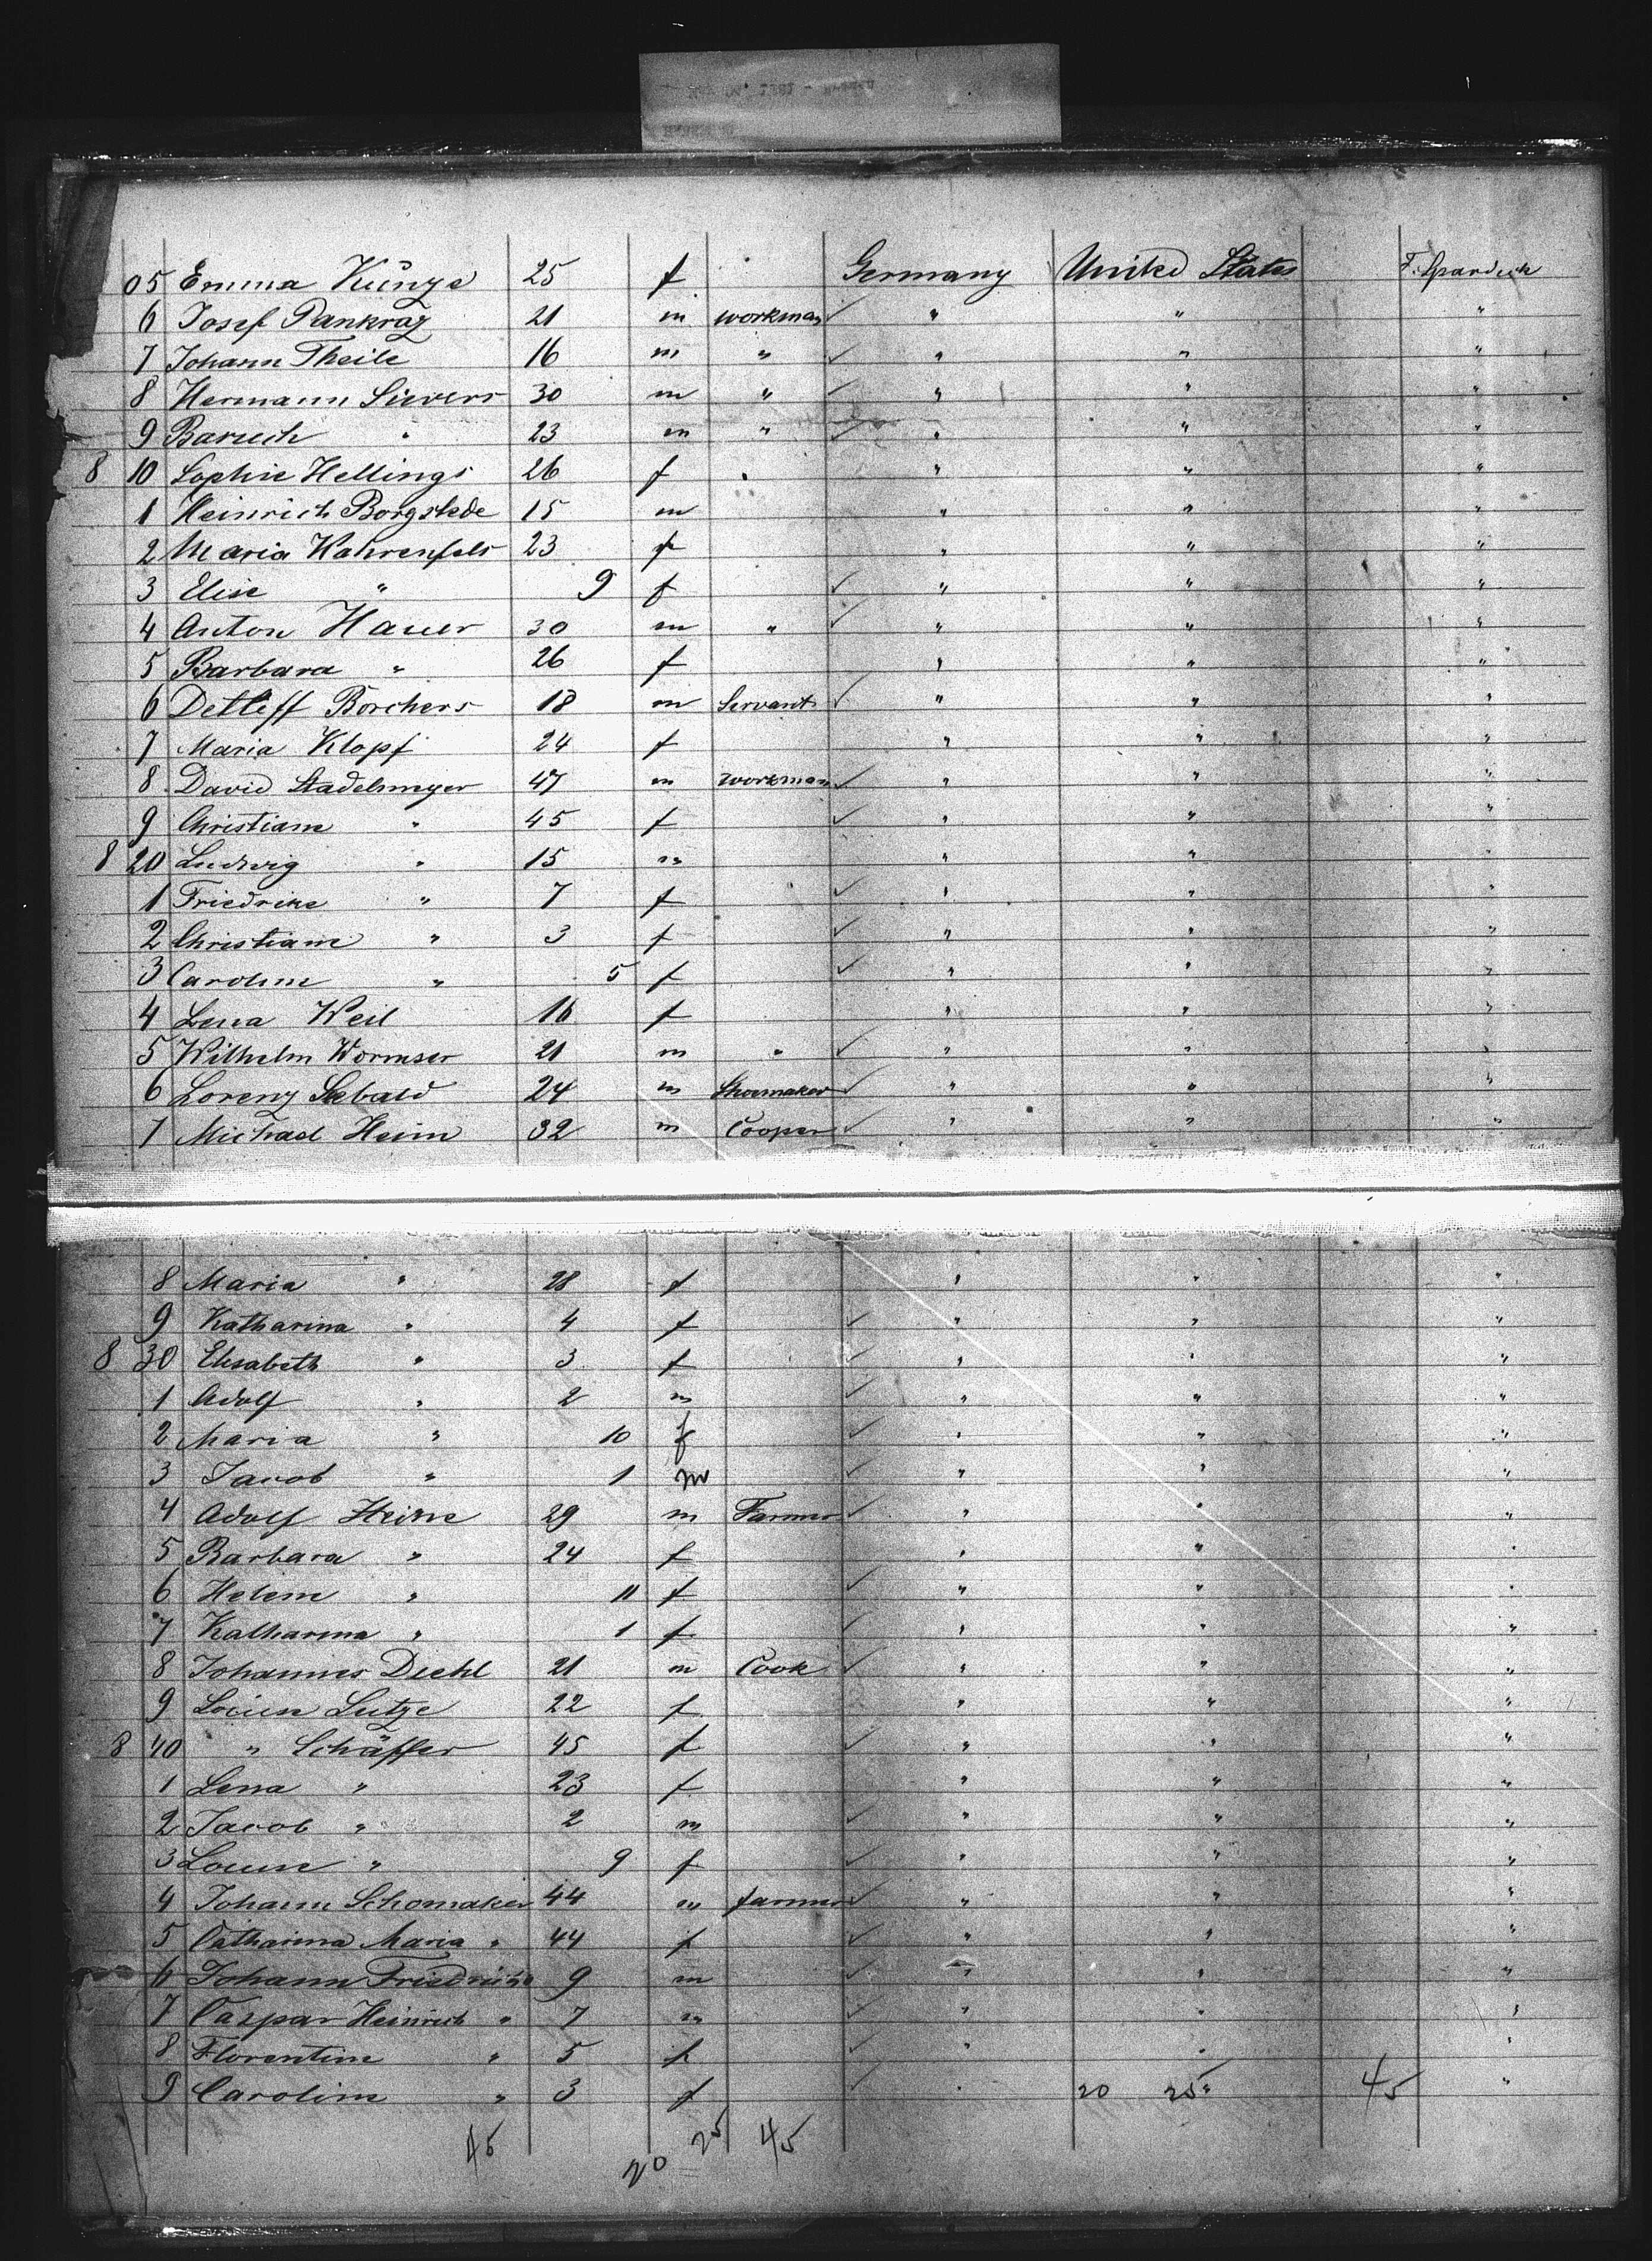 05 Emma Künze 25 f Germany United States F. Spardeck
6 Josef Pankraz 21 m workman " " "
7 Johann Theile 16 m " " " "
8 Hermann Sievers 30 m " " " "
9 Baruch " 23 m " " " "
8 10 Sophie Hellings 26 f " " " "
1 Heinrich Borgstede 15 m " " "
2 Maria Kahrenfels 23 f " " "
3 Elise " 9 f " " "
4 Anton Hauer 30 m " " " "
5 Barbara " 26 f " " "
6 Detleff Borchers 18 m Servant " " "
7 Maria Klopf 24 f " " "
8 David Stadelmeyer 47 m workman " " "
9 Christiane " 45 f " " "
8 20 Ludwig " 15 m " " "
1 Friedrike " 7 f " " "
2 Christiane " 3 f " " "
3 Caroline " 5 f " " "
4 Lena Weil 16 f " " "
5 Wilhelm Wormser 21 m " " " "
6 Lorenz Sebald 24 m Shoemaker " " "
7 Michael Heim 32 m Cooper " " "
8 Maria " 28 f " " "
9 Katharina " 4 f " " "
8 30 Elisabeth " 3 f " " "
1 Adolf " 2 m " " "
2 Maria " 10 f " " "
3 Jacob " 1 m " " "
4 Adolf Heine 29 m Farmer " " "
5 Barbara " 24 f " " "
6 Helene " 11 f " " "
7 Katharina " 1 f " " "
8 Johannes Diehl 21 m Cook " " "
9 Louise Lutze 22 f " " "
8 40 " Schäffer 45 f " " "
1 Lena " 23 f " " "
2 Jacob " 2 m " " "
3 Louise " 9 f " " "
4 Johann Schomaker 44 m farmer " " "
5 Catharina Maria " 44 f " " "
6 Johann Friedrich " 9 m " " "
7 Caspar Heinrich " 7 m " " "
8 Florentine " 5 f " " "
9 Caroline " 3 f " 20 25 " 45 "
45 20 25 45